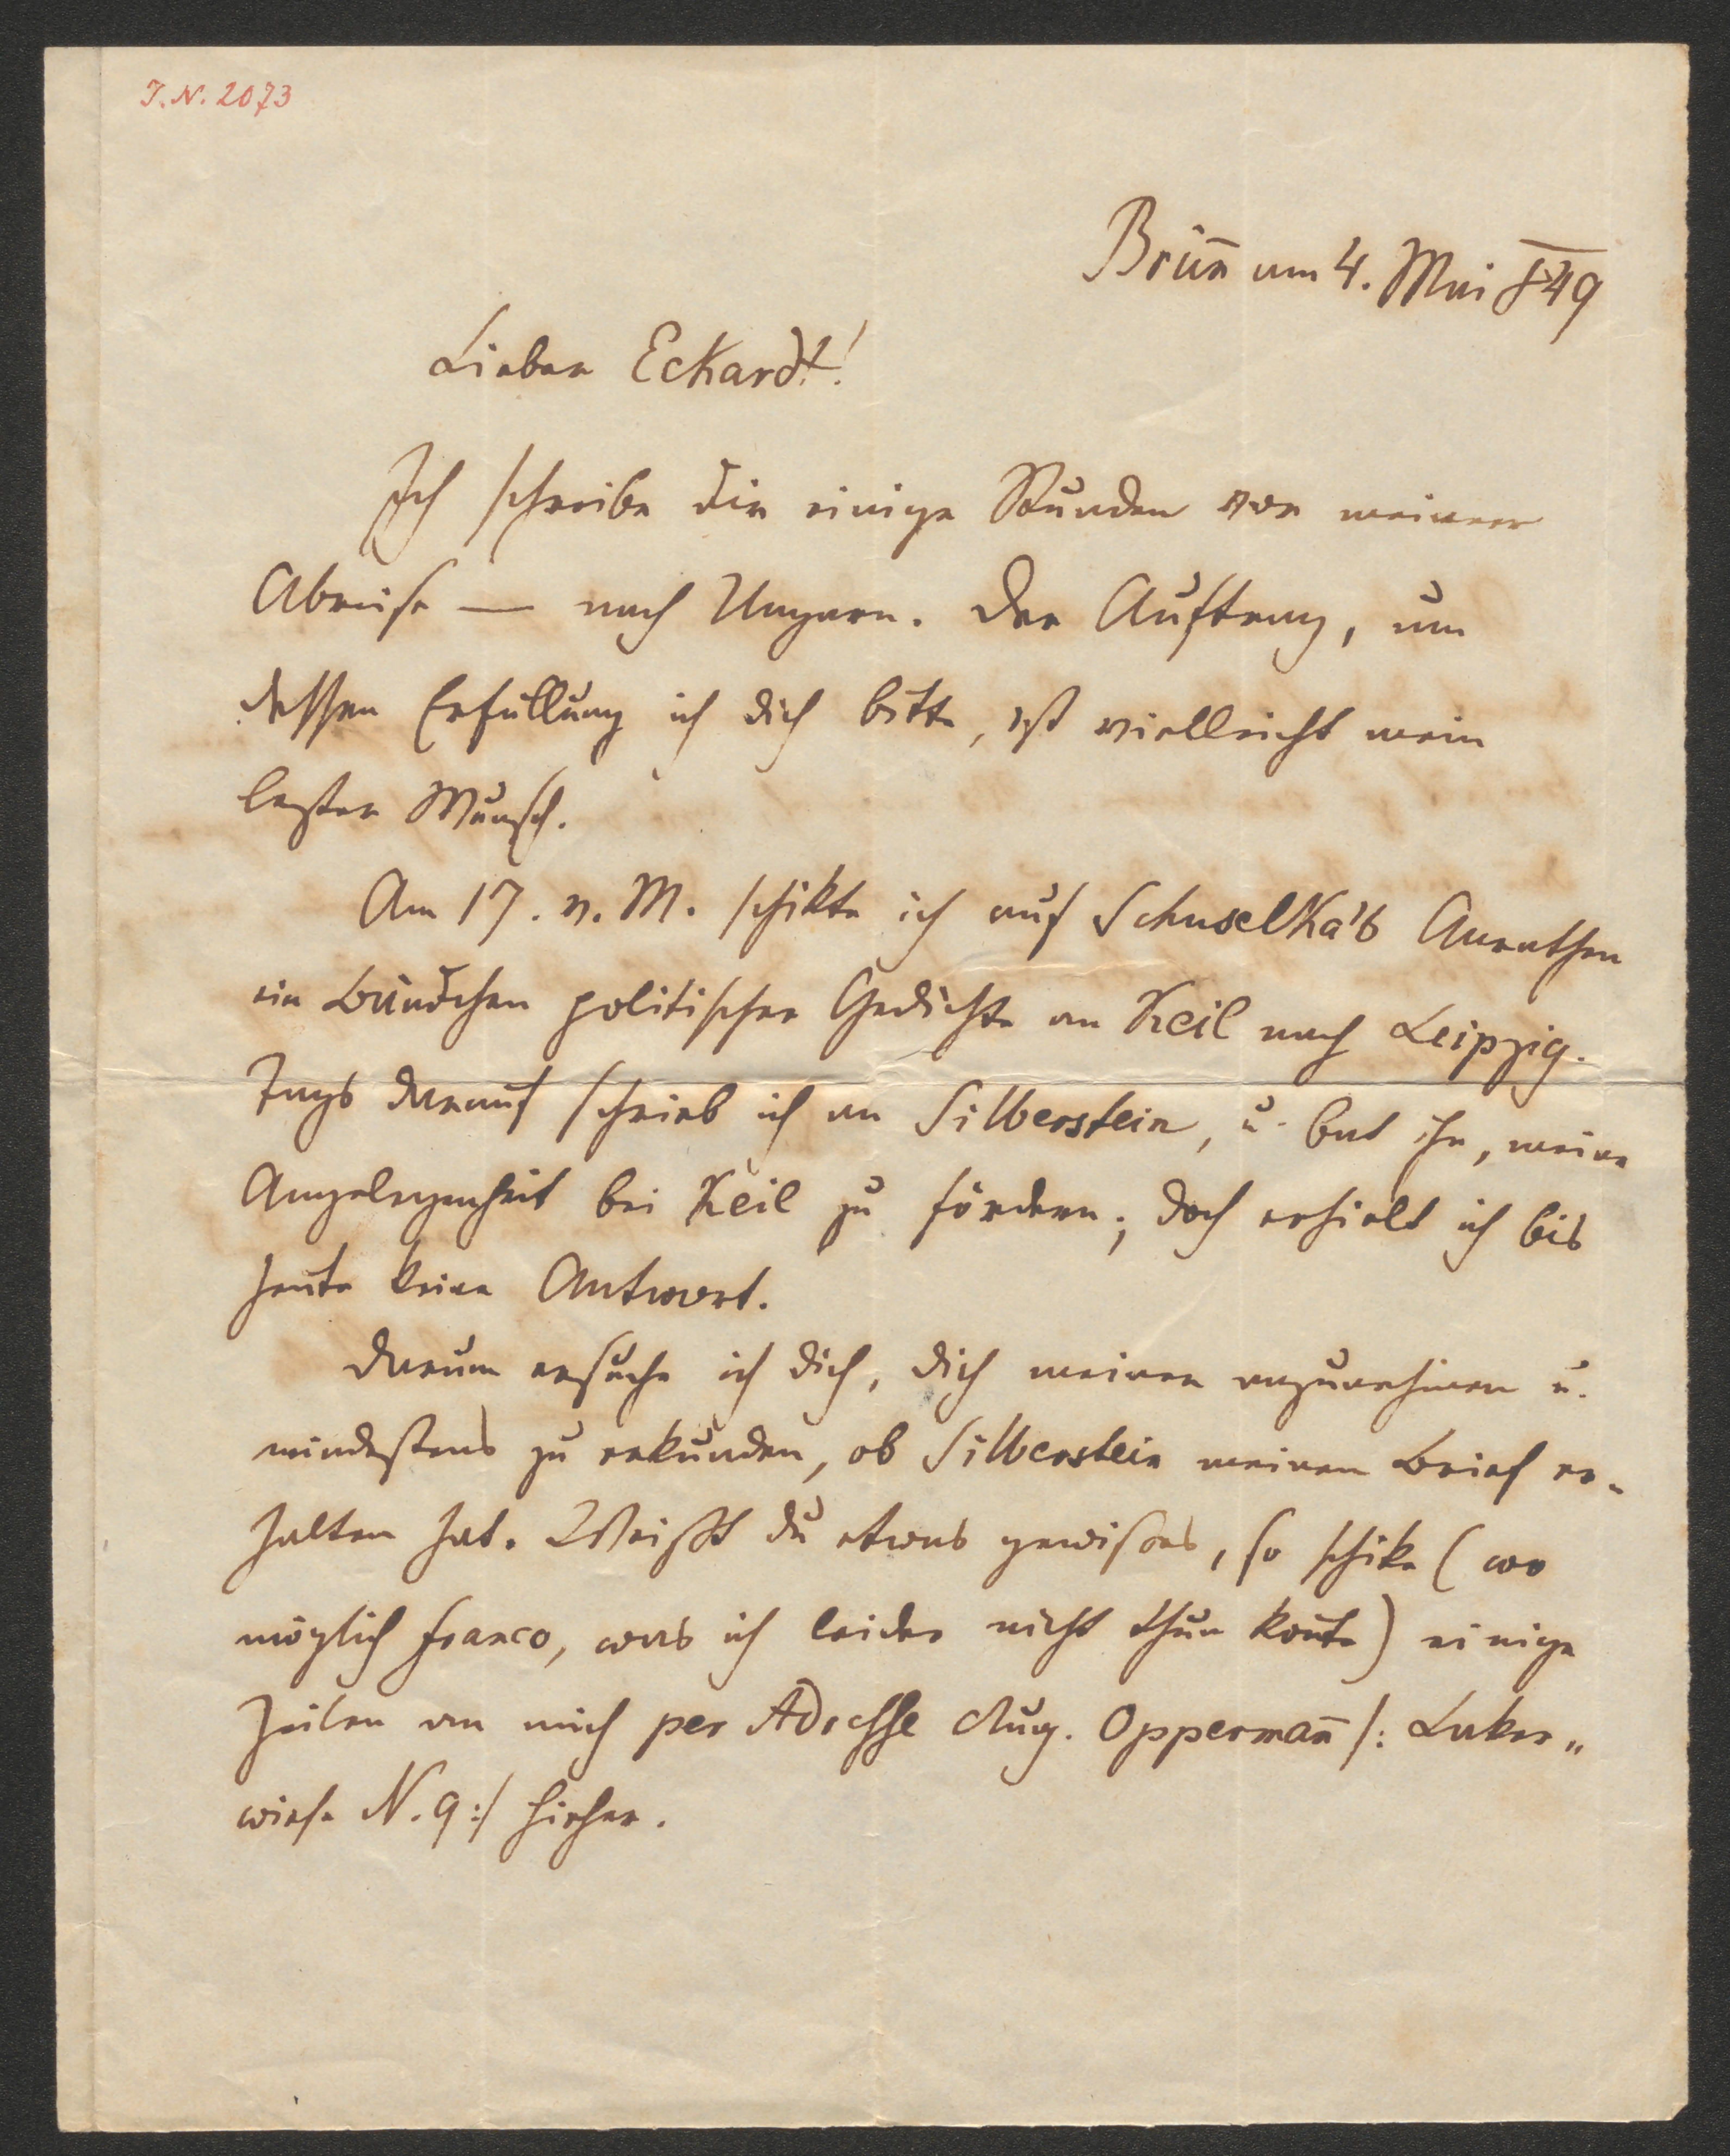 J. N. 2073
Brün̄ am 4. Mai 849
Lieber Eckardt!
Ich schreibe dir einige Stunden vor meiner
Abreise — nach Ungarn. Der Auftrag, um
dessen Erfüllung ich dich bitte, ist vielleicht mein
lezter Wunsch.
Am 17. v. M. schikte ich auf Schuselka's Anrathen
ein Bändchen politischer Gedichte an Keil nach Leipzig.
Tags darauf schrieb ich an Silberstein, u. bat ihn, meine
Angelegenheit bei Keil zu fördern; doch erhielt ich bis
heute keine Antwort.
Darum ersuche ich dich, dich meiner anzunehmen u.
mindestens zu erkunden, ob Silberstein meinen Brief er-
halten hat. Weißt du etwas gewißes, so schike (wo
möglich franco, was ich leider nicht thun kon̄te) einige
Zeilen an mich per Adresse Aug. Opperman̄ /: Laker„
wiese N. 9 :/ hieher.